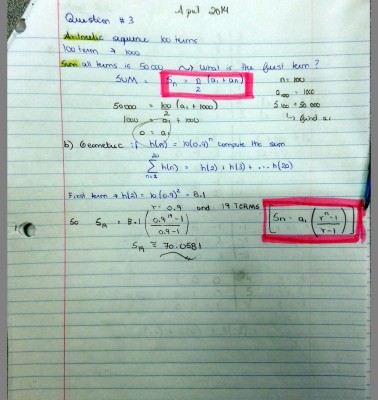 April 2014
Question #3
Arithmetic sequence 100 terms
100 term → 1000
Sum all terms is 50000 → What is the first term?
SUM = Sn = n/2 (a1 + an) n = 100
a100 = 1000
50000 = 100/2 (a1 + 1000) S100 = 50000
1000 = a1 + 1000 ↳ find a1
0 = a1
b) Geometric: if h(n) = 10(0.9)^n compute the sum
20
Σ h(n) = h(2) + h(3) + ... h(20)
n=2
First term → h(2) = 10(0.9)² = 8.1
r = 0.9 and 19 TERMS
So S19 = 8.1 (0.9^19 - 1 / 0.9 - 1) [Sn = a1 (r^n - 1 / r - 1)]
S19 ≅ 70.0581